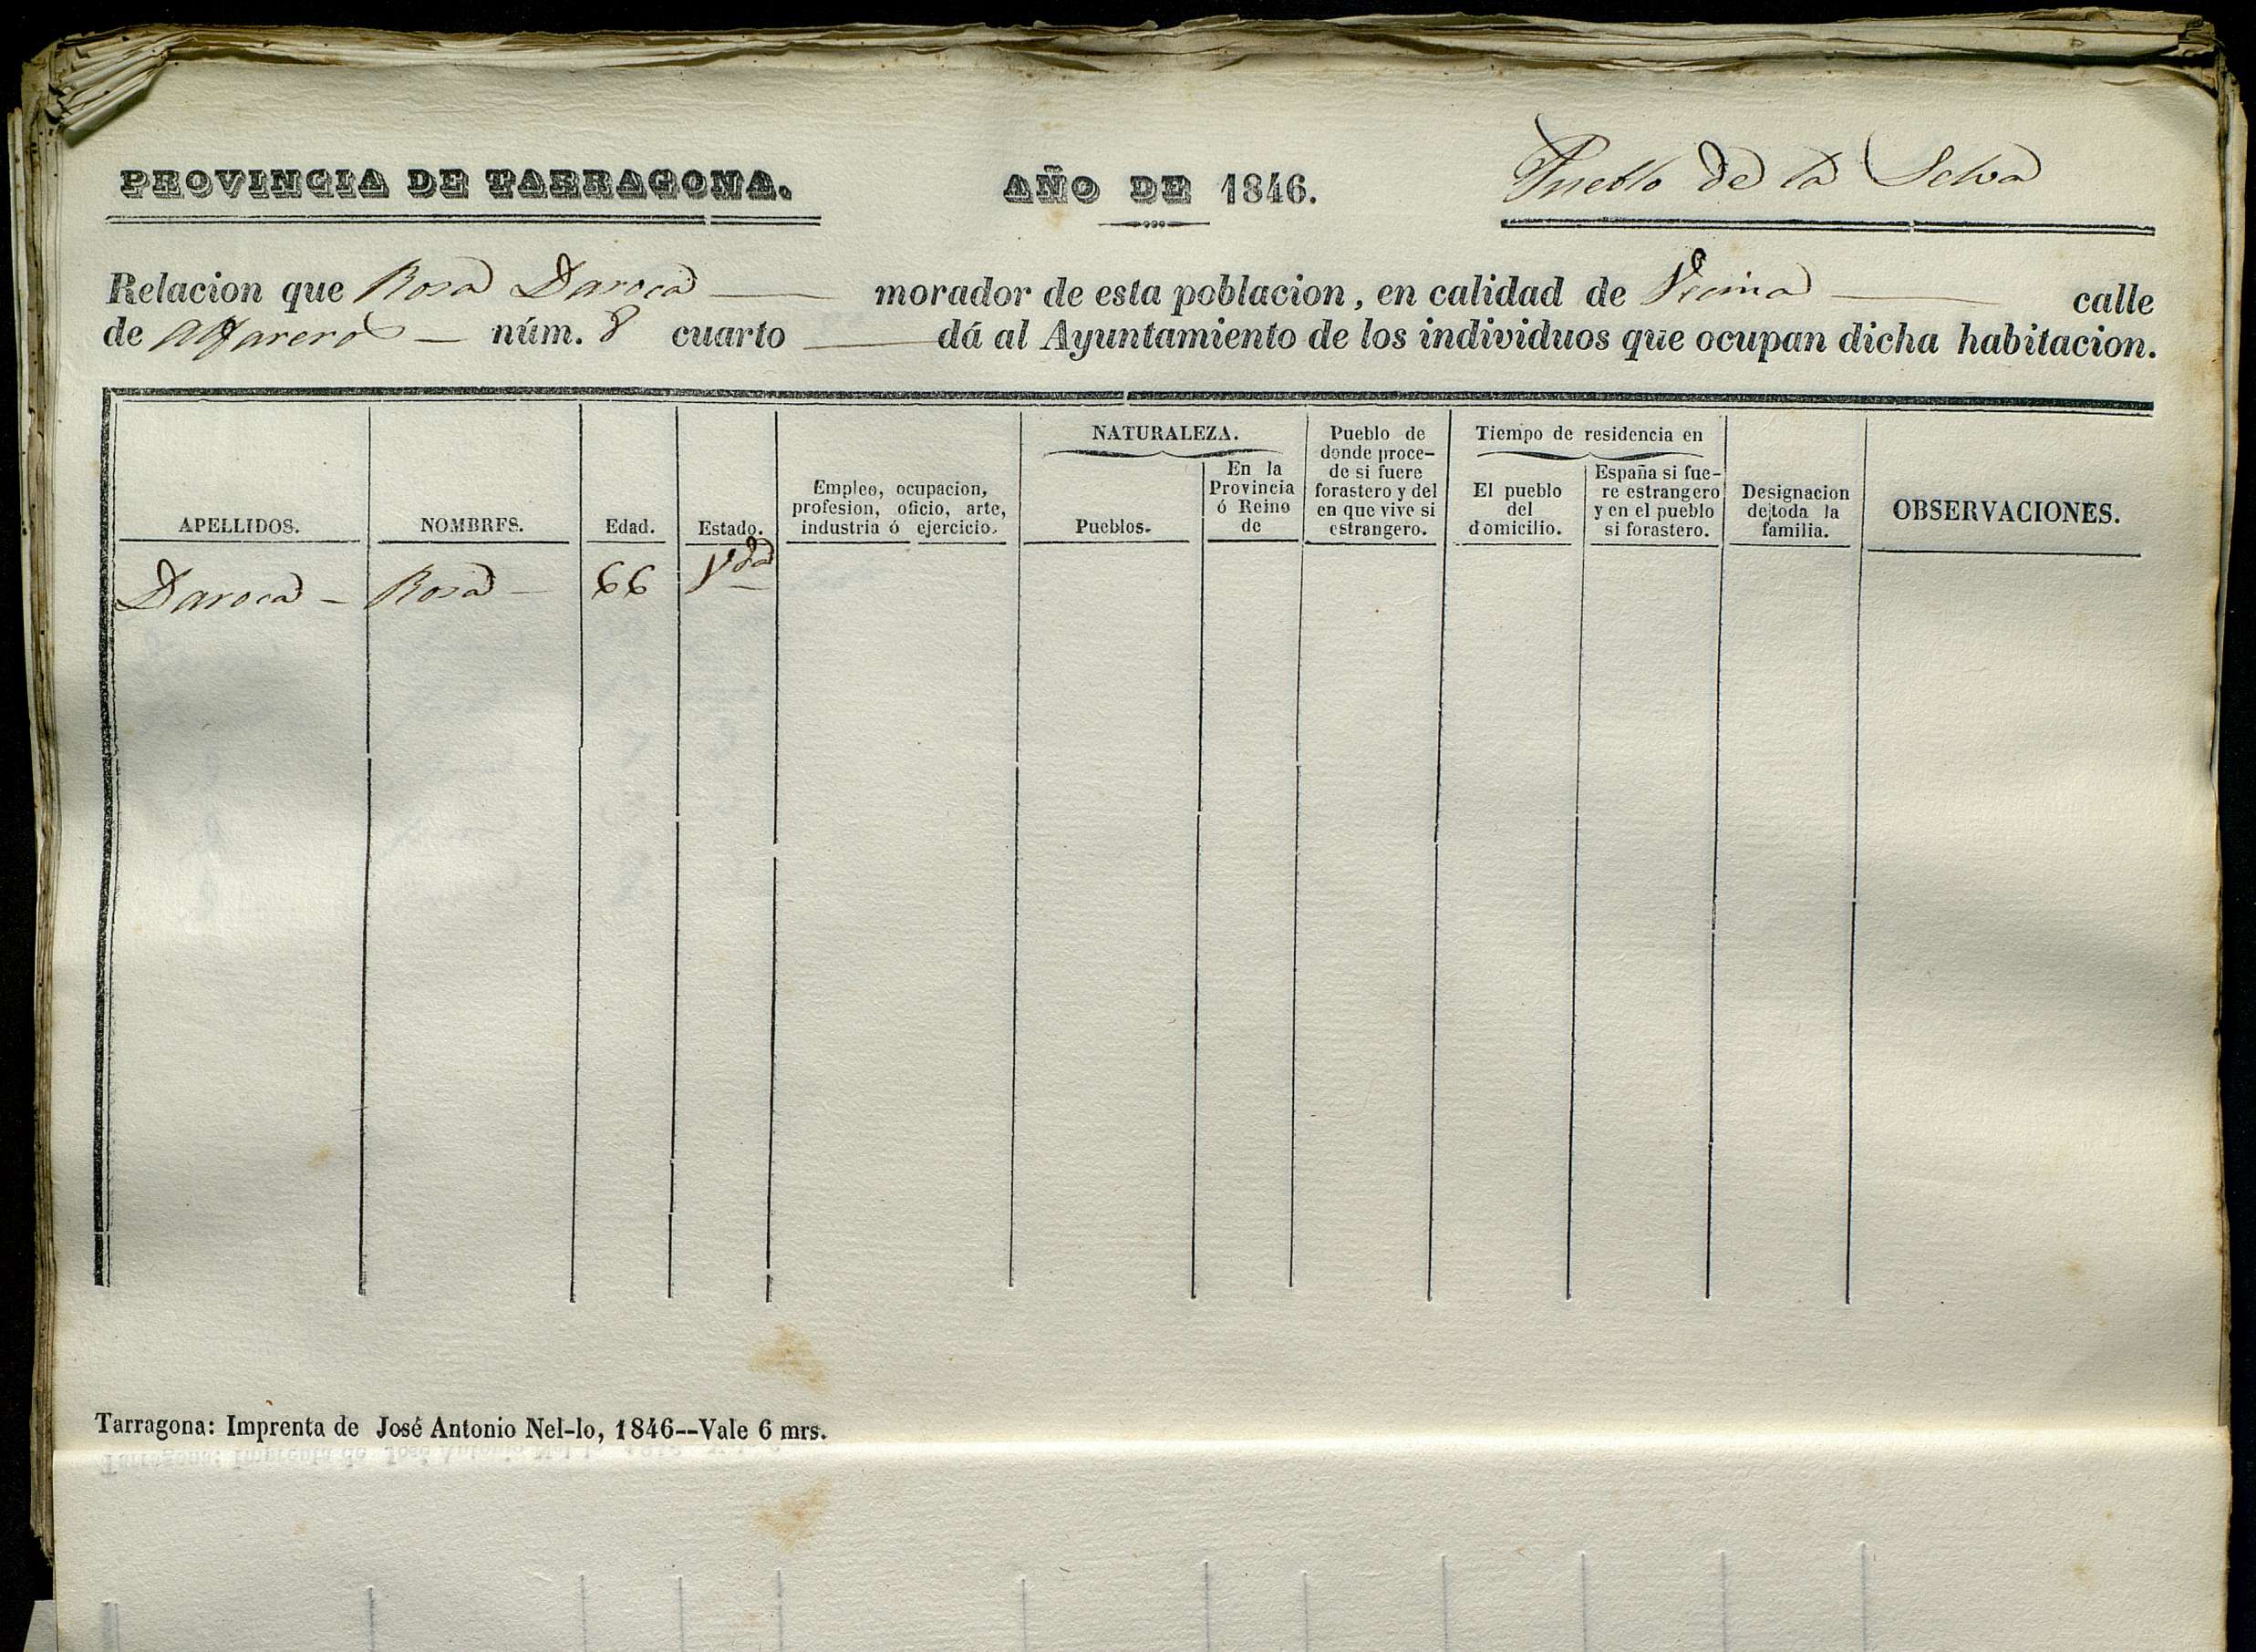 PROVINCIA DE TARRAGONA. AÑO DE 1846. Pueblo de la Selva
Relacion que Rosa Daroca — morador de esta poblacion, en calidad de Vecina — calle
de Alfareros — núm. 8 cuarto — dá al Ayuntamiento de los individuos que ocupan dicha habitacion.
APELLIDOS.
NOMBRES.
Edad.
Estado.
Empleo, ocupacion,
profesion, oficio, arte,
industria ó ejercicio.
NATURALEZA.
Pueblos.
En la
Provincia
ó Reino
de
Pueblo de
donde proce-
de si fuere
forastero y del
en que vive si
estrangero.
Tiempo de residencia en
El pueblo
del
domicilio.
España si fue-
re estrangero
y en el pueblo
si forastero.
Designacion
de toda la
familia.
OBSERVACIONES.
Daroca — Rosa — 66 Vda
Tarragona: Imprenta de José Antonio Nel-lo, 1846--Vale 6 mrs.